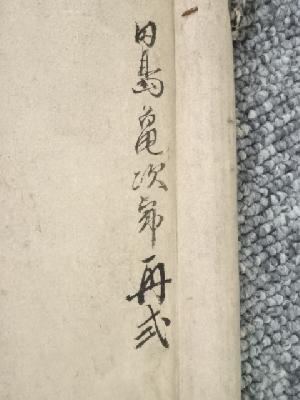 田島亀次郎再弐